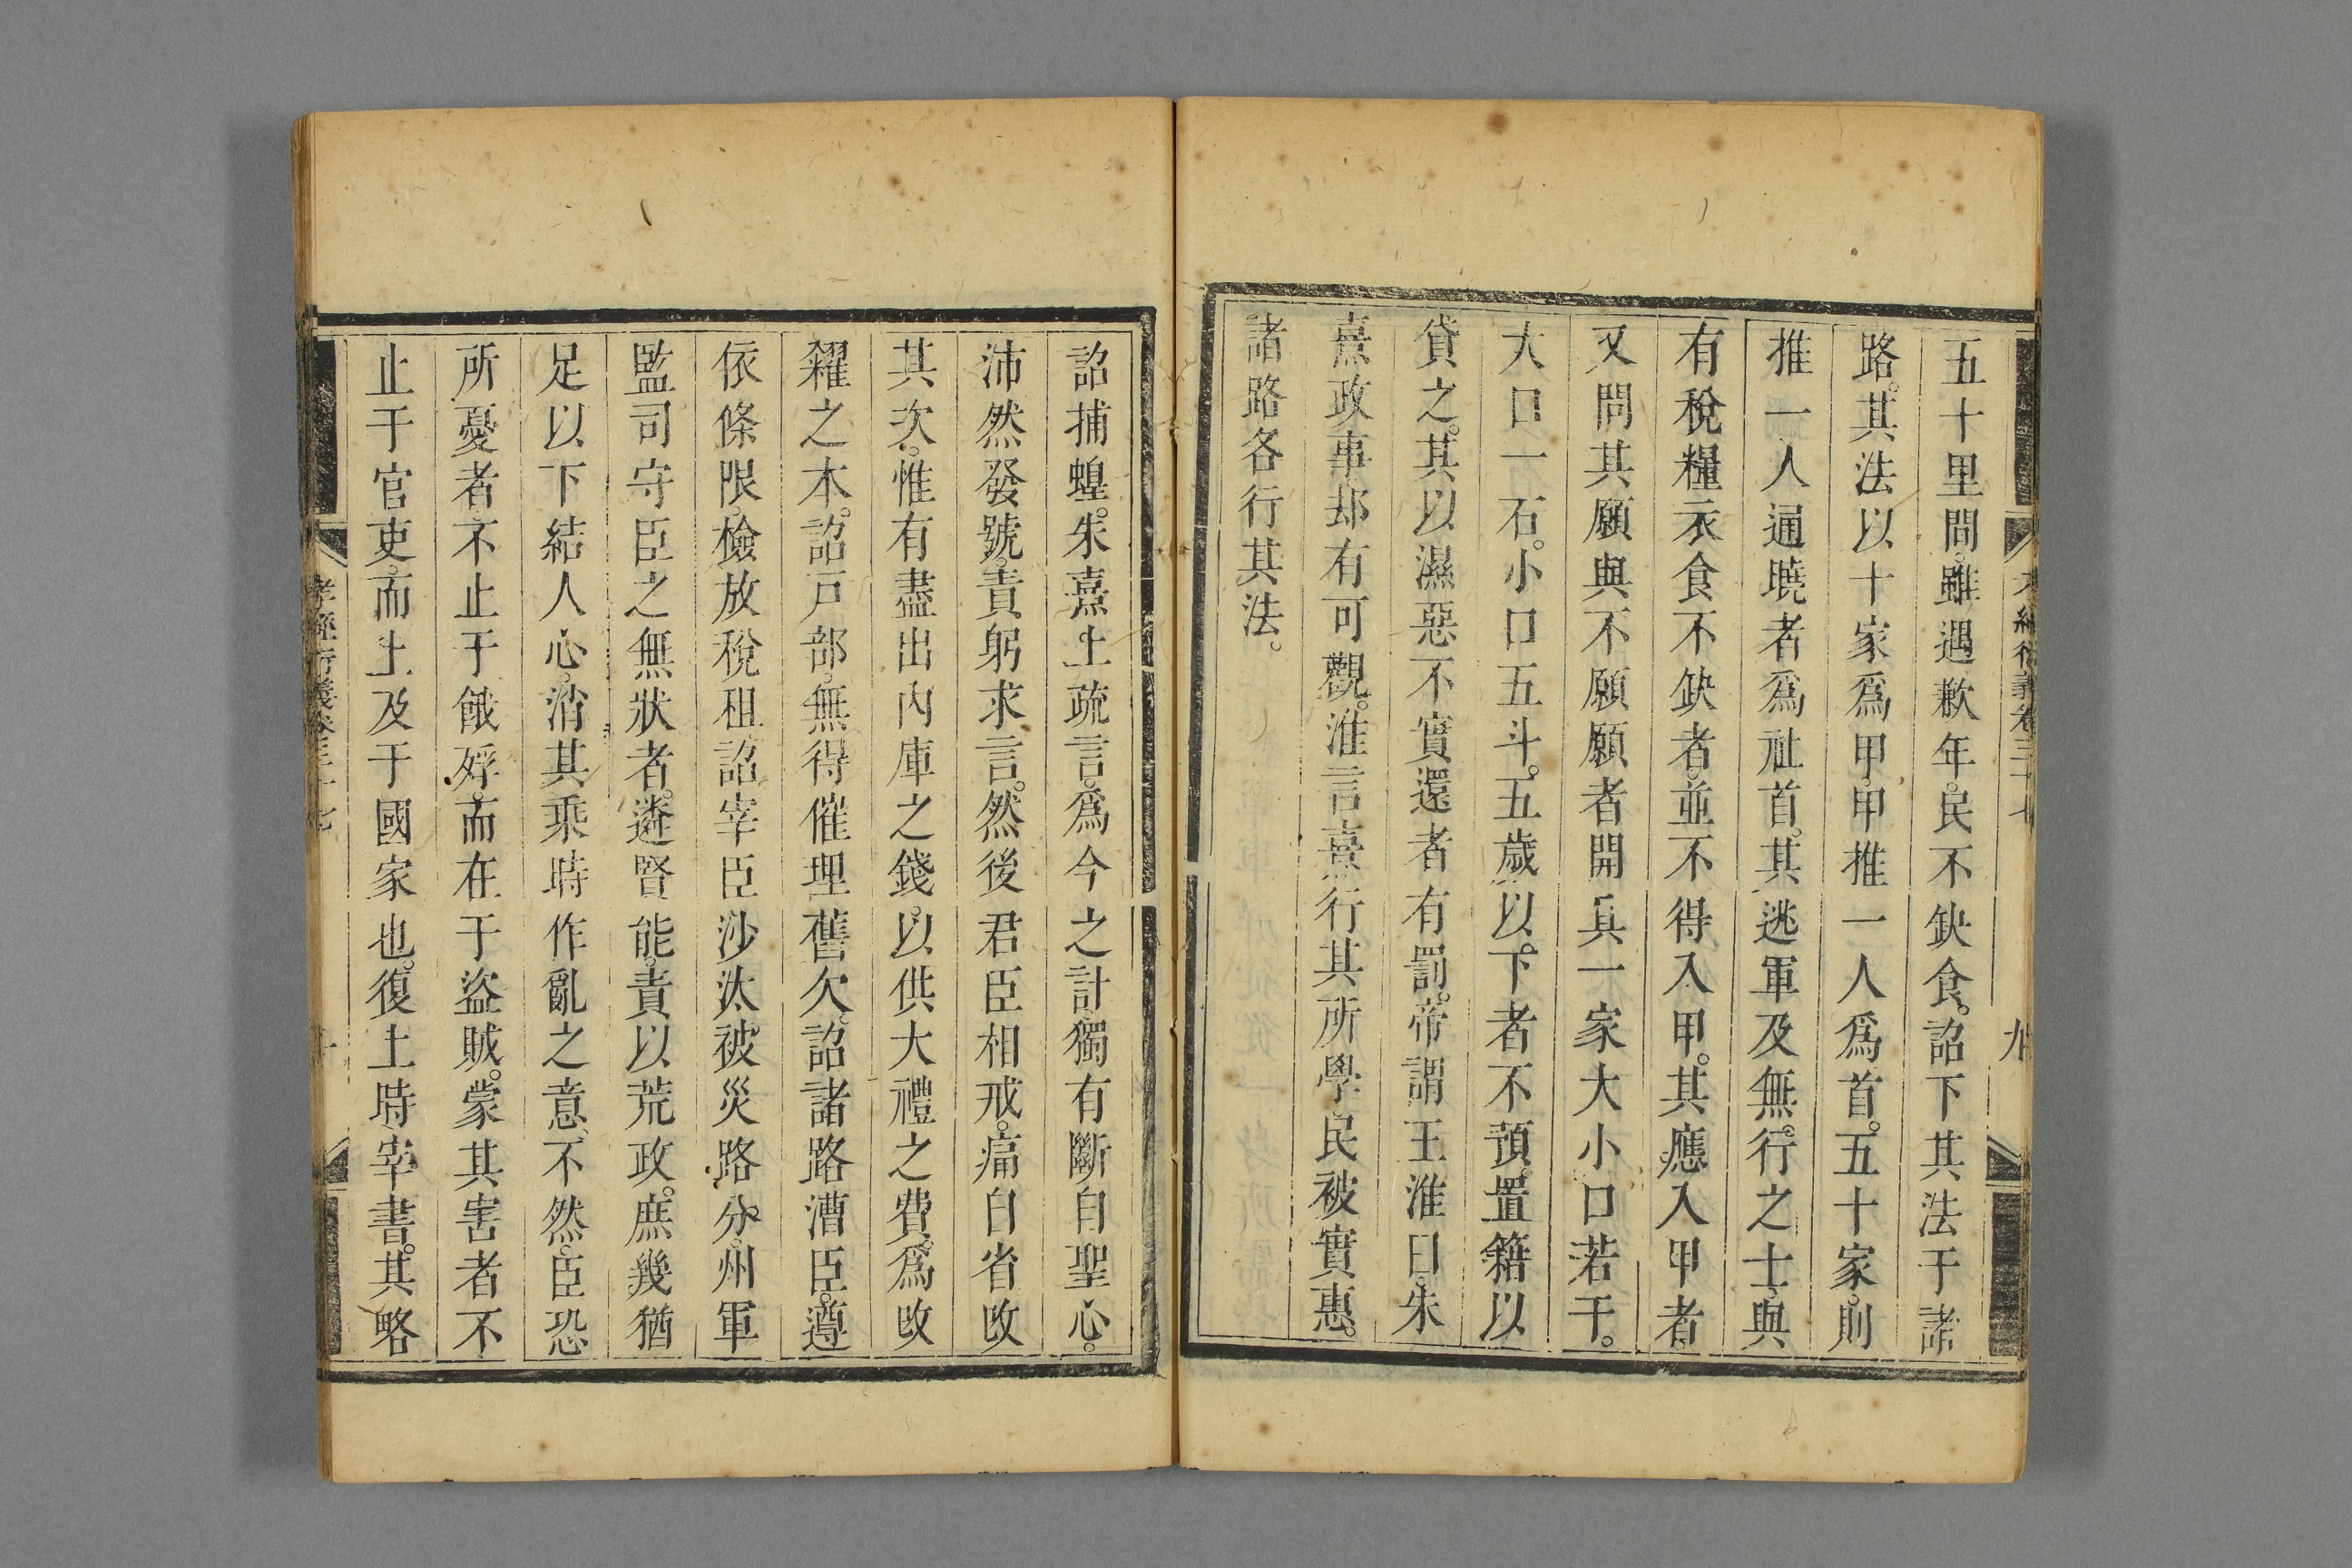 五十里間。雖遇歉年。民不缺食。詔下其法于諸
路。其法以十家爲甲。甲推一人爲首。五十家。則
推一人通曉者爲社首。其逃軍及無行之士。與
有稅糧衣食不缺者。並不得入甲。其應入甲者。
又問其願與不願。願者開具一家大小口若干。
大口一石。小口五斗。五歲以下者不預。置籍以
貸之。其以濕惡不實還者有罰。帝謂王淮曰。朱
熹政事却有可觀。淮言熹行其所學。民被實惠。
諸路各行其法。
詔捕蝗。朱熹上疏言。爲今之計。獨有斷自聖心。
沛然發號。責躬求言。然後君臣相戒。痛自省改
其次。惟有盡出內庫之錢。以供大禮之費。爲收
糴之本。詔戸部。無得催理舊欠。詔諸路漕臣。遵
依條限。檢放稅租。詔宰臣沙汰被災路分。州軍
監司守臣之無狀者。遴賢能。責以荒政。庶幾猶
足以下結人心。消其乘時作亂之意。不然。臣恐
所憂者不止于餓殍。而在于盜賊。蒙其害者不
止于官吏。而上及于國家也。復上時宰書。其略
孝經衍義卷三十七
九